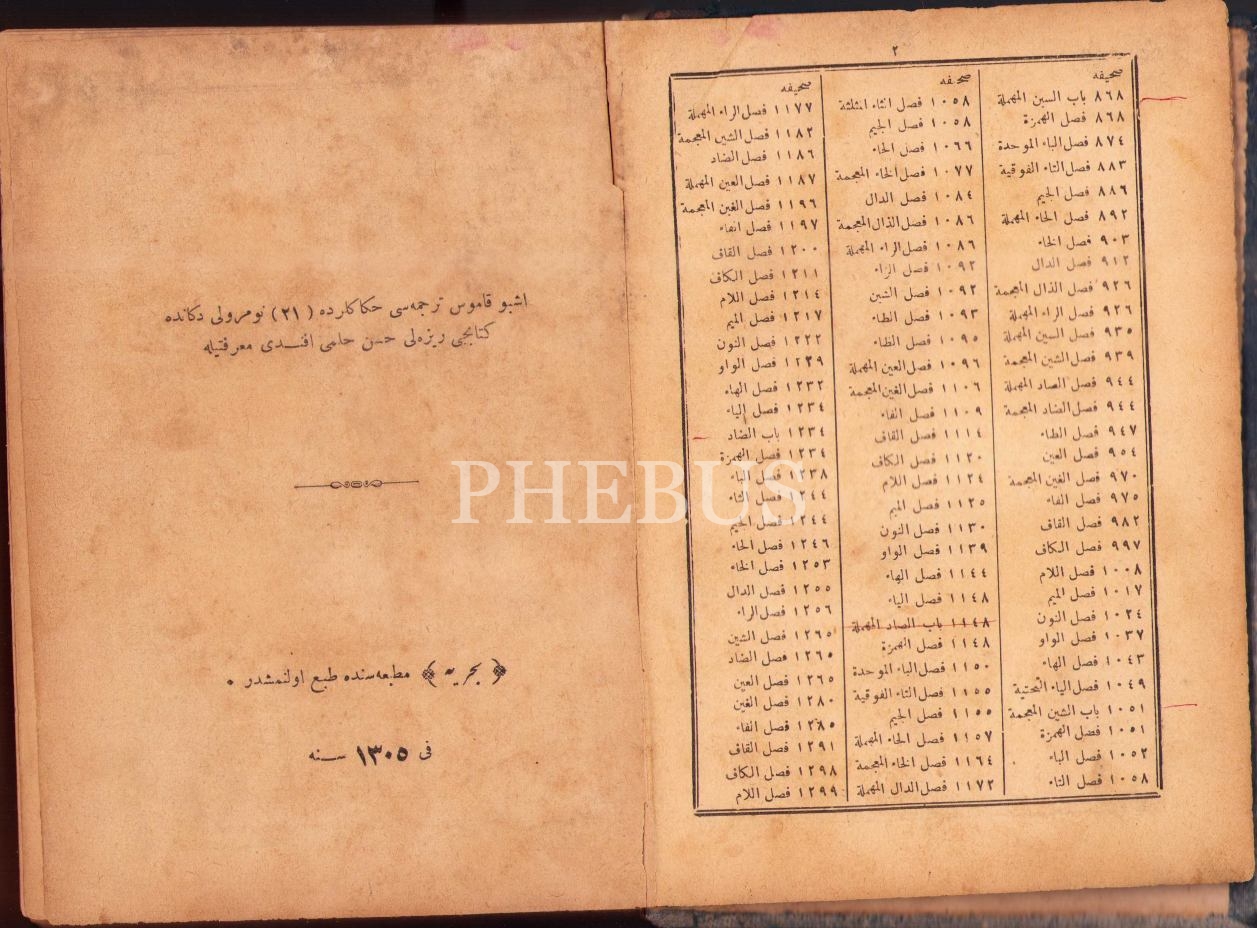 ٢
صحيفه
٨٦٨ باب السين المهملة
٨٦٨ فصل الهمزة
٨٧٤ فصل الباء الموحدة
٨٨٣ فصل التاء الفوقية
٨٨٦ فصل الجيم
٨٩٢ فصل الحاء المهملة
٩٠٣ فصل الخاء
٩١٢ فصل الدال
٩٢٦ فصل الذال المعجمة
٩٢٦ فصل الراء المهملة
٩٣٥ فصل السين المهملة
٩٣٩ فصل الشين المعجمة
٩٤٤ فصل الصاد المهملة
٩٤٤ فصل الضاد المعجمة
٩٤٧ فصل الطاء
٩٥٤ فصل العين
٩٧٠ فصل الغين المعجمة
٩٧٥ فصل الفاء
٩٨٢ فصل القاف
٩٩٧ فصل الكاف
١٠٠٨ فصل اللام
١٠١٧ فصل الميم
١٠٢٤ فصل النون
١٠٣٧ فصل الواو
١٠٤٣ فصل الهاء
١٠٤٩ فصل الياء التحتية
١٠٥١ باب الشين المعجمة
١٠٥١ فصل الهمزة
١٠٥٢ فصل الباء
١٠٥٨ فصل التاء
صحيفه
١٠٥٨ فصل الثاء المثلثة
١٠٥٨ فصل الجيم
١٠٦٦ فصل الحاء
١٠٧٧ فصل الخاء المعجمة
١٠٨٤ فصل الدال
١٠٨٦ فصل الذال المعجمة
١٠٨٦ فصل الراء المهملة
١٠٩٢ فصل الزاء
١٠٩٢ فصل الشين
١٠٩٣ فصل الطاء
١٠٩٥ فصل الظاء
١٠٩٦ فصل العين المهملة
١١٠٦ فصل الغين المعجمة
١١٠٩ فصل الفاء
١١١٤ فصل القاف
١١٢٠ فصل الكاف
١١٢٤ فصل اللام
١١٢٥ فصل الميم
١١٣٠ فصل النون
١١٣٩ فصل الواو
١١٤٤ فصل الهاء
١١٤٨ فصل الياء
١١٤٨ باب الصاد المهملة
١١٤٨ فصل الهمزة
١١٥٠ فصل الباء الموحدة
١١٥٥ فصل التاء الفوقية
١١٥٥ فصل الجيم
١١٥٧ فصل الحاء المهملة
١١٦٤ فصل الخاء المعجمة
١١٧٢ فصل الدال المهملة
صحيفه
١١٧٧ فصل الراء المهملة
١١٨٢ فصل الشين المعجمة
١١٨٦ فصل الضاد
١١٨٧ فصل العين المهملة
١١٩٦ فصل الغين المعجمة
١١٩٧ فصل الفاء
١٢٠٠ فصل القاف
١٢١١ فصل الكاف
١٢١٤ فصل اللام
١٢١٧ فصل الميم
١٢٢٢ فصل النون
١٢٢٩ فصل الواو
١٢٣٢ فصل الهاء
١٢٣٤ فصل الياء
١٢٣٤ باب الضاد
١٢٣٤ فصل الهمزة
١٢٣٨ فصل الباء
١٢٤٤ فصل التاء
١٢٤٤ فصل الجيم
١٢٤٦ فصل الحاء
١٢٥٣ فصل الخاء
١٢٥٥ فصل الدال
١٢٥٦ فصل الراء
١٢٦٥ فصل الشين
١٢٦٥ فصل الضاد
١٢٦٥ فصل العين
١٢٨٠ فصل الغين
١٢٨٥ فصل الفاء
١٢٩١ فصل القاف
١٢٩٨ فصل الكاف
١٢٩٩ فصل اللام
اشبو قاموس ترجمه‌سی حكاكلرده (٢١) نومرولی دكانده
كتابجی ريزه‌لی حسن حلمی افندی معرفتيله
﴿بحريه﴾ مطبعه‌سنده طبع اولنمشدر .
فی ١٣٠٥ سنه
PHEBUS